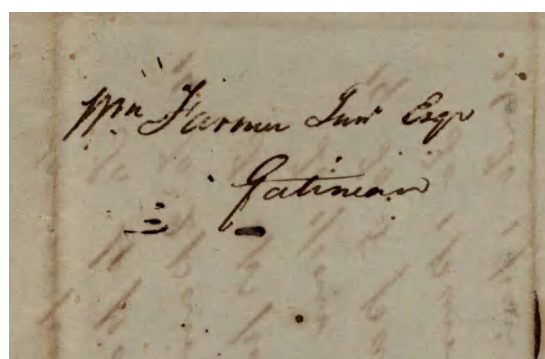 Wm Farmer Junr Esqr
Gatineau